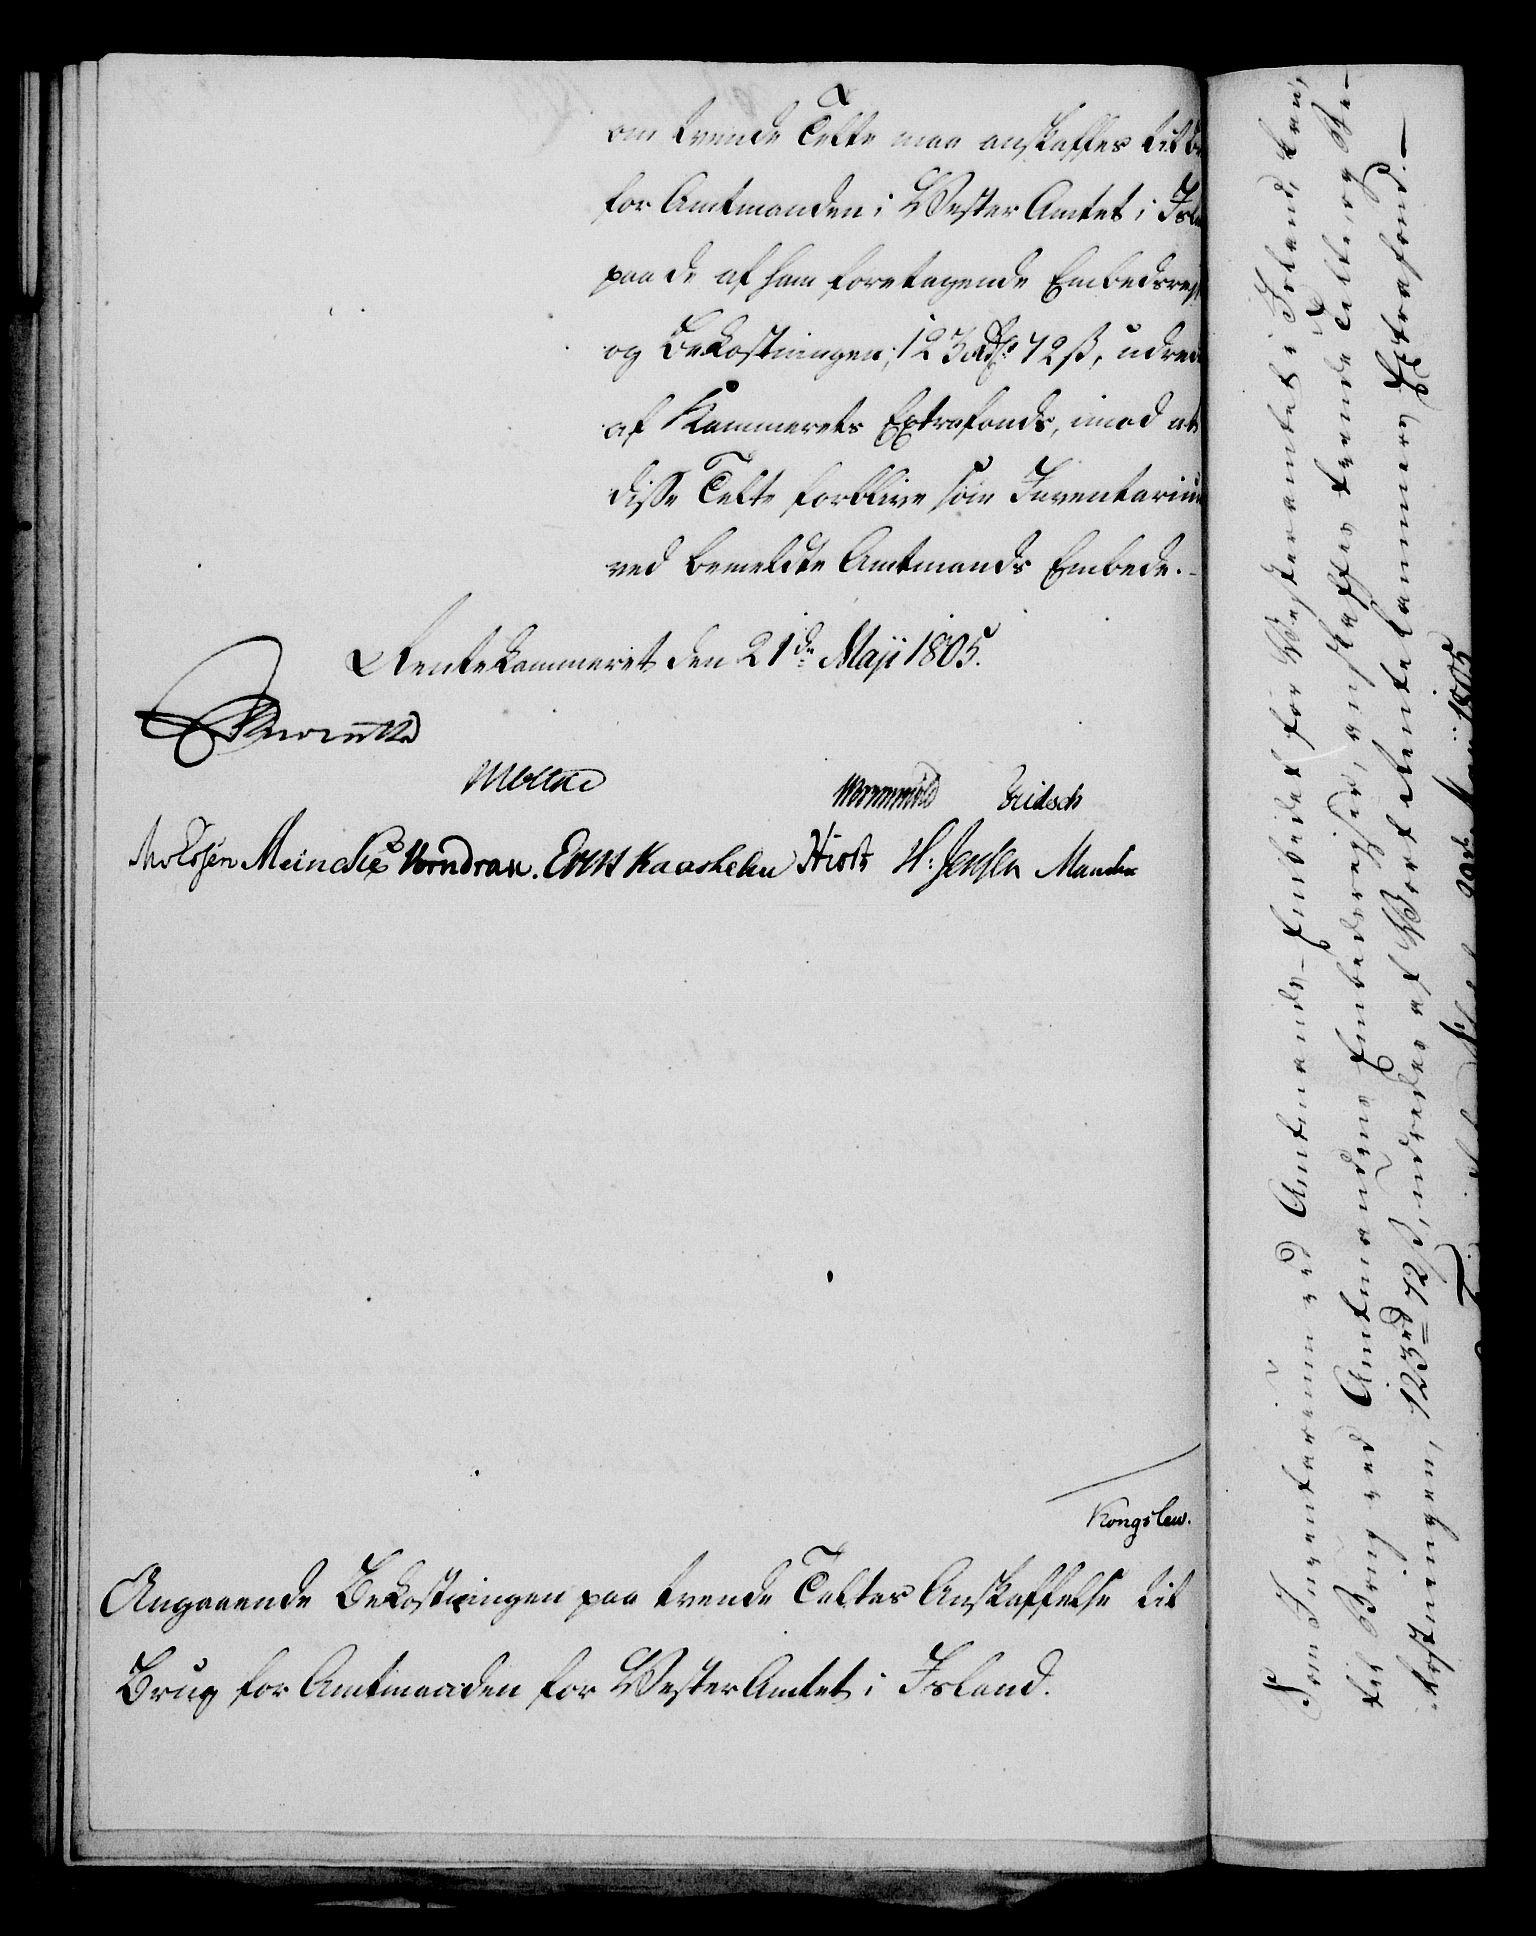 om trende Telte maa anskaffes til
for Amtmanden i Wester Amtet i
paa de af ham foretagende
og Bekostningen, 123 Rdr 72 ß,
af Kammerets Extrafonds, imod at
disse Telte forblive som Inventarium
ved bemeldte Amtmands Embede.
Rentekammeret den 21de Maji 1805.
Reventlow
Moltke Wormskiold Fritsch
Meincke Vorndran. Knudsen Hirth H: Jensen
Kongslew.
Angaaende Bekostningen paa trende Teltes Anskaffelse til
Brug for Amtmanden for Wester Amtet i Island.
Som Inventarium ved Amtmands-Embedet for Vesteramtet i Island,
til Brug ved Amtmandens Embedsreyser, anskaffes trende Telte, og Be-
kostningen, 123 rd 72 ß, udredes af Vort Rentekammers Extrafond.—
Maji 1805